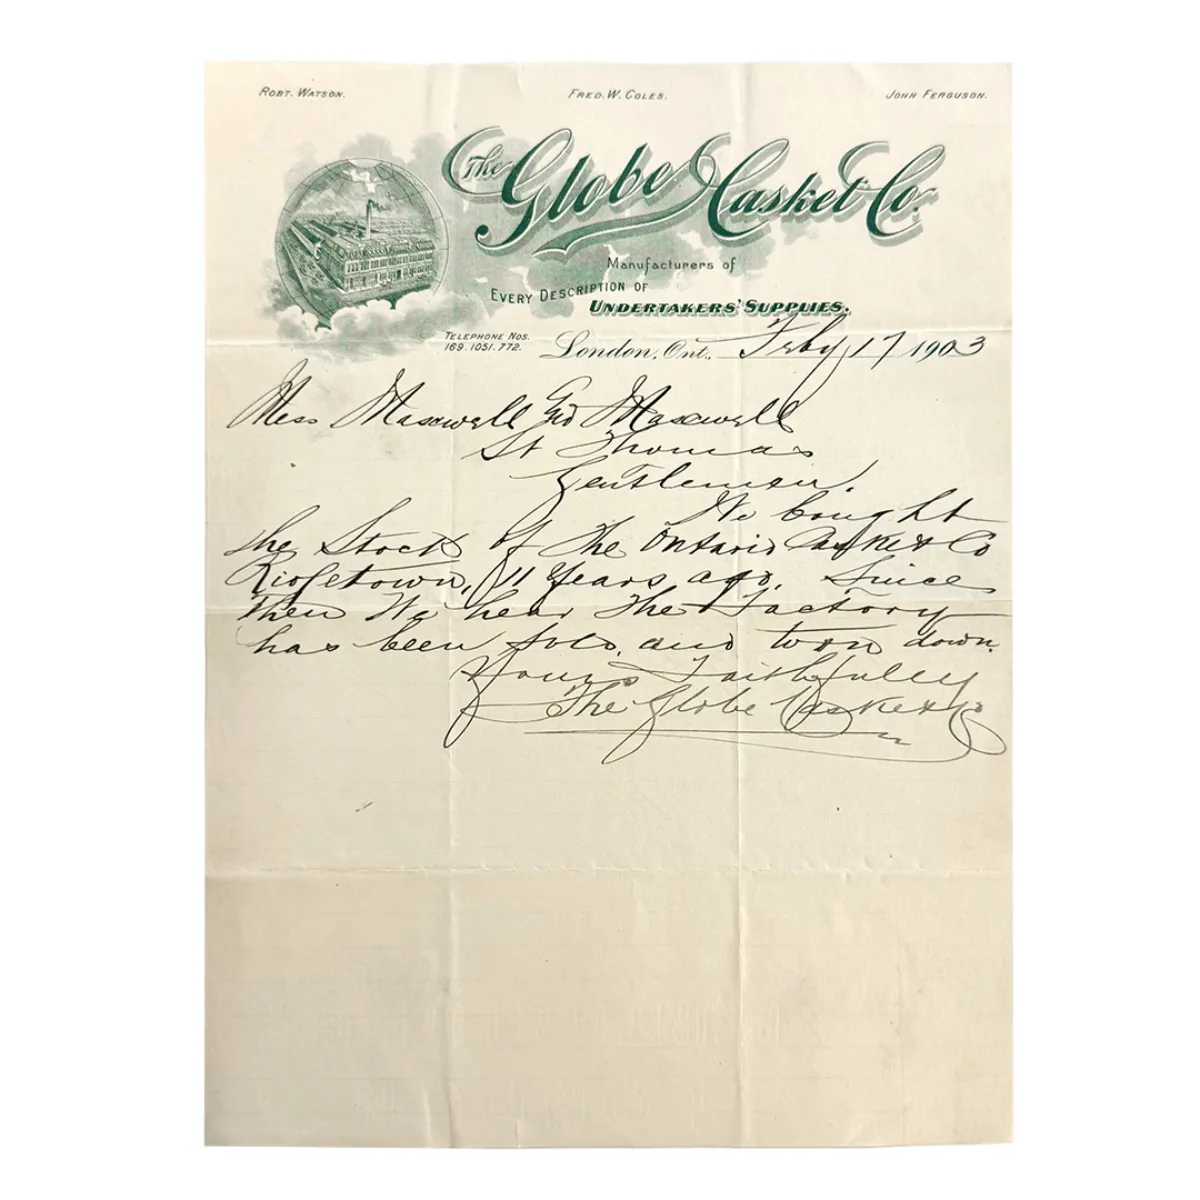 Robt. Watson. Fred. W. Coles. John Ferguson.
The Globe Casket Co.
Manufacturers of
Every Description of
Undertakers' Supplies.
Telephone Nos.
169. 1051. 772.
London, Ont., Feby 17 1903
Mess Maxwell Maxwell
St Thomas
Gentlemen.
We bought
the Stock of The Ontario Casket Co
Ridgetown, 11 Years ago. Since
Then We hear The Factory
has been sold, and torn down.
Yours Faithfully
The Globe Casket Co